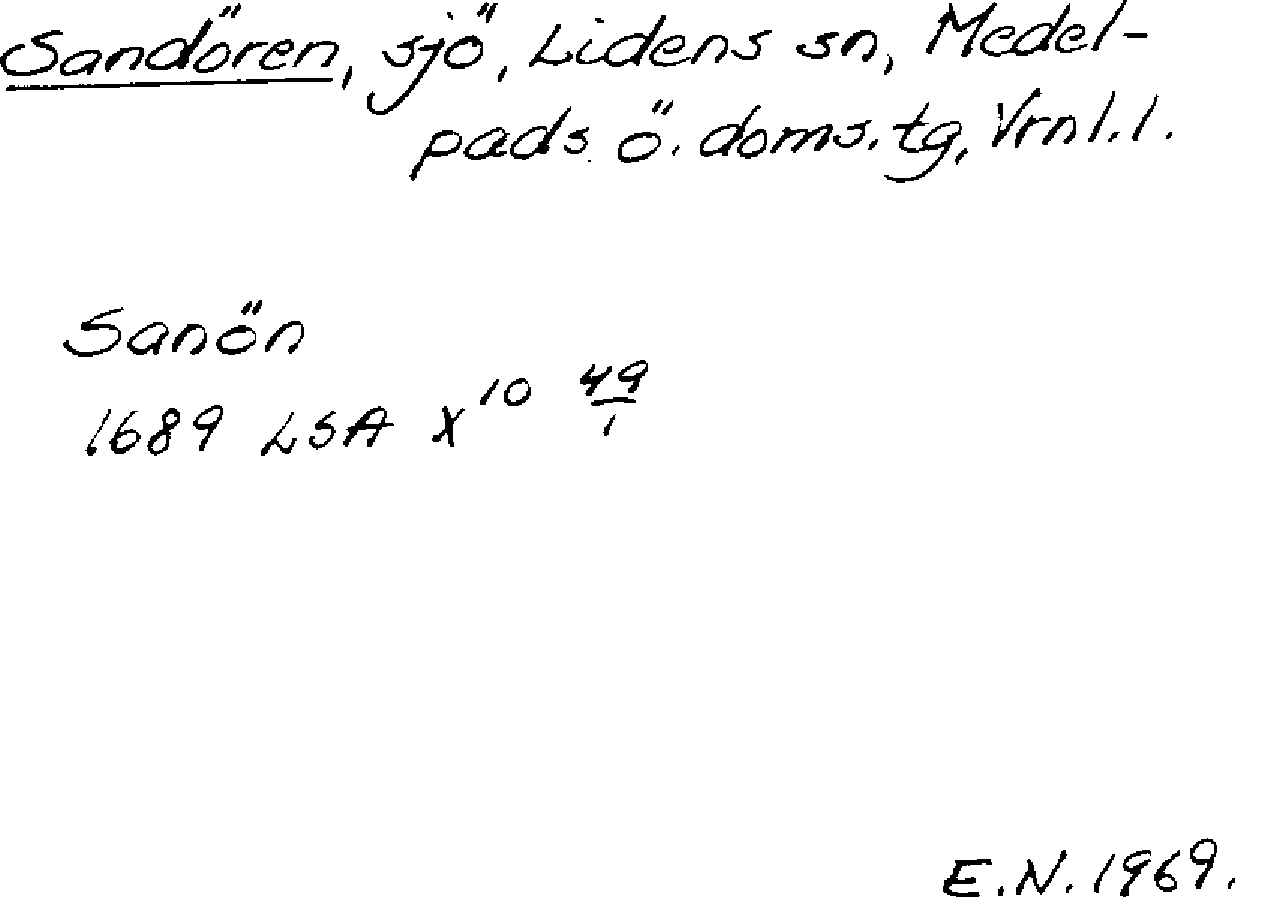 Sandören, sjö, Lidens sn, Medel-
pads ö. doms.tg, Vrnl.l.
Sanön
1689 LSA X¹⁰ 49/1
E.N. 1969.